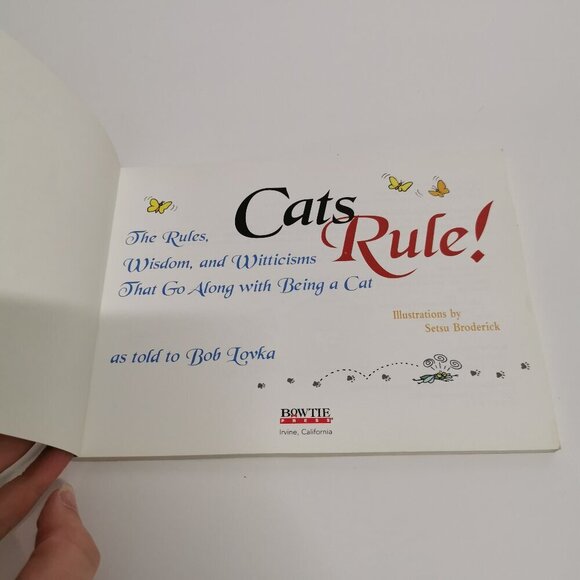 Cats
Rule!
The Rules,
Wisdom, and Witticisms
That Go Along with Being a Cat
Illustrations by
Setsu Broderick
as told to Bob Lovka
BOWTIE
PRESS
Irvine, California